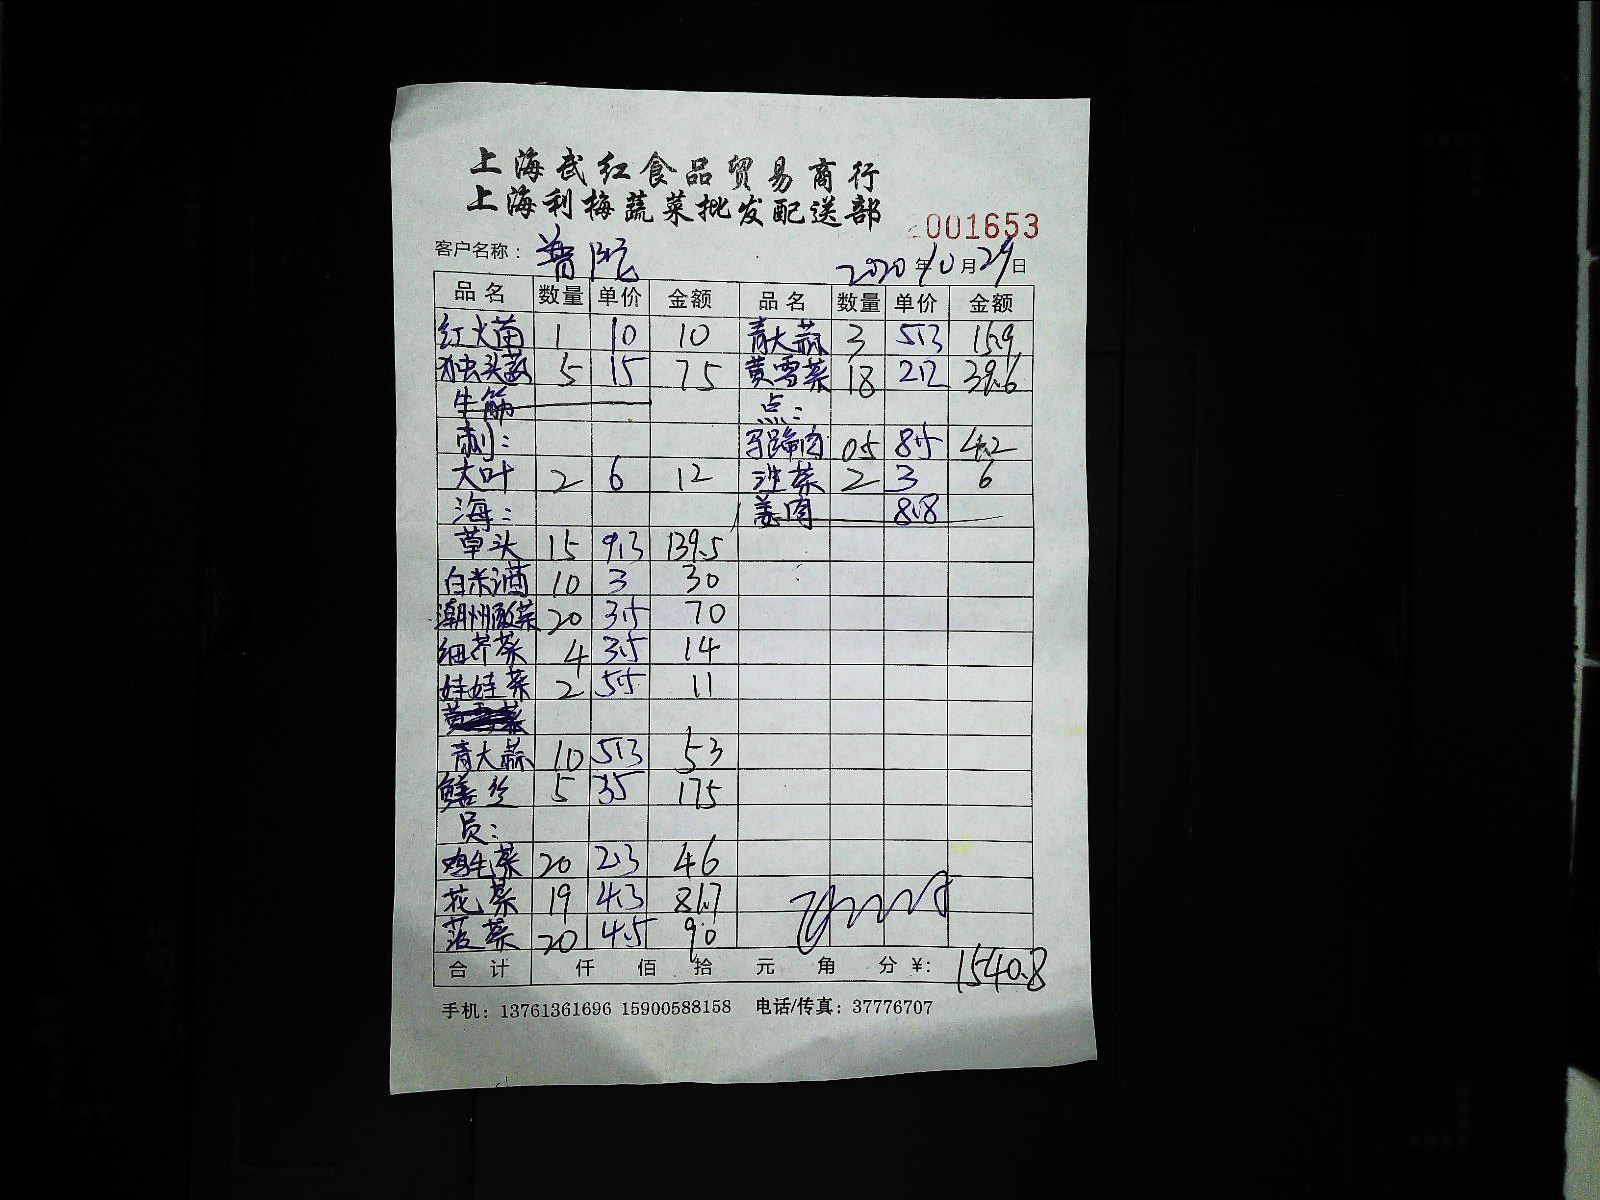 上海武红食品贸易商行
上海利梅蔬菜批发配送部
2001653
客户名称：普陀 2020年10月29日
品名 数量 单价 金额 品名 数量 单价 金额
红火苗 1 10 10 青大蒜 3 5.3 15.9
独头蒜 5 15 75 黄雪菜 18 2.2 39.6
牛筋 点：
刺： 马蹄肉 0.5 8.5 4.2
大叶 2 6 12 3 2 6
海： 姜肉 8.8
草头 15 9.3 139.5
白米酒 10 3 30
潮州酸菜 20 3.5 70
细芥菜 4 3.5 14
娃娃菜 2 5.5 11
青大蒜 10 5.3 53
鳝丝 5 35 175
员：
鸡毛菜 20 2.3 46
花菜 19 4.3 81.7
菠菜 20 4.5 90
合计 仟 佰 拾 元 角 分 ¥: 1540.8
手机：13761361696 15900588158 电话/传真：37776707